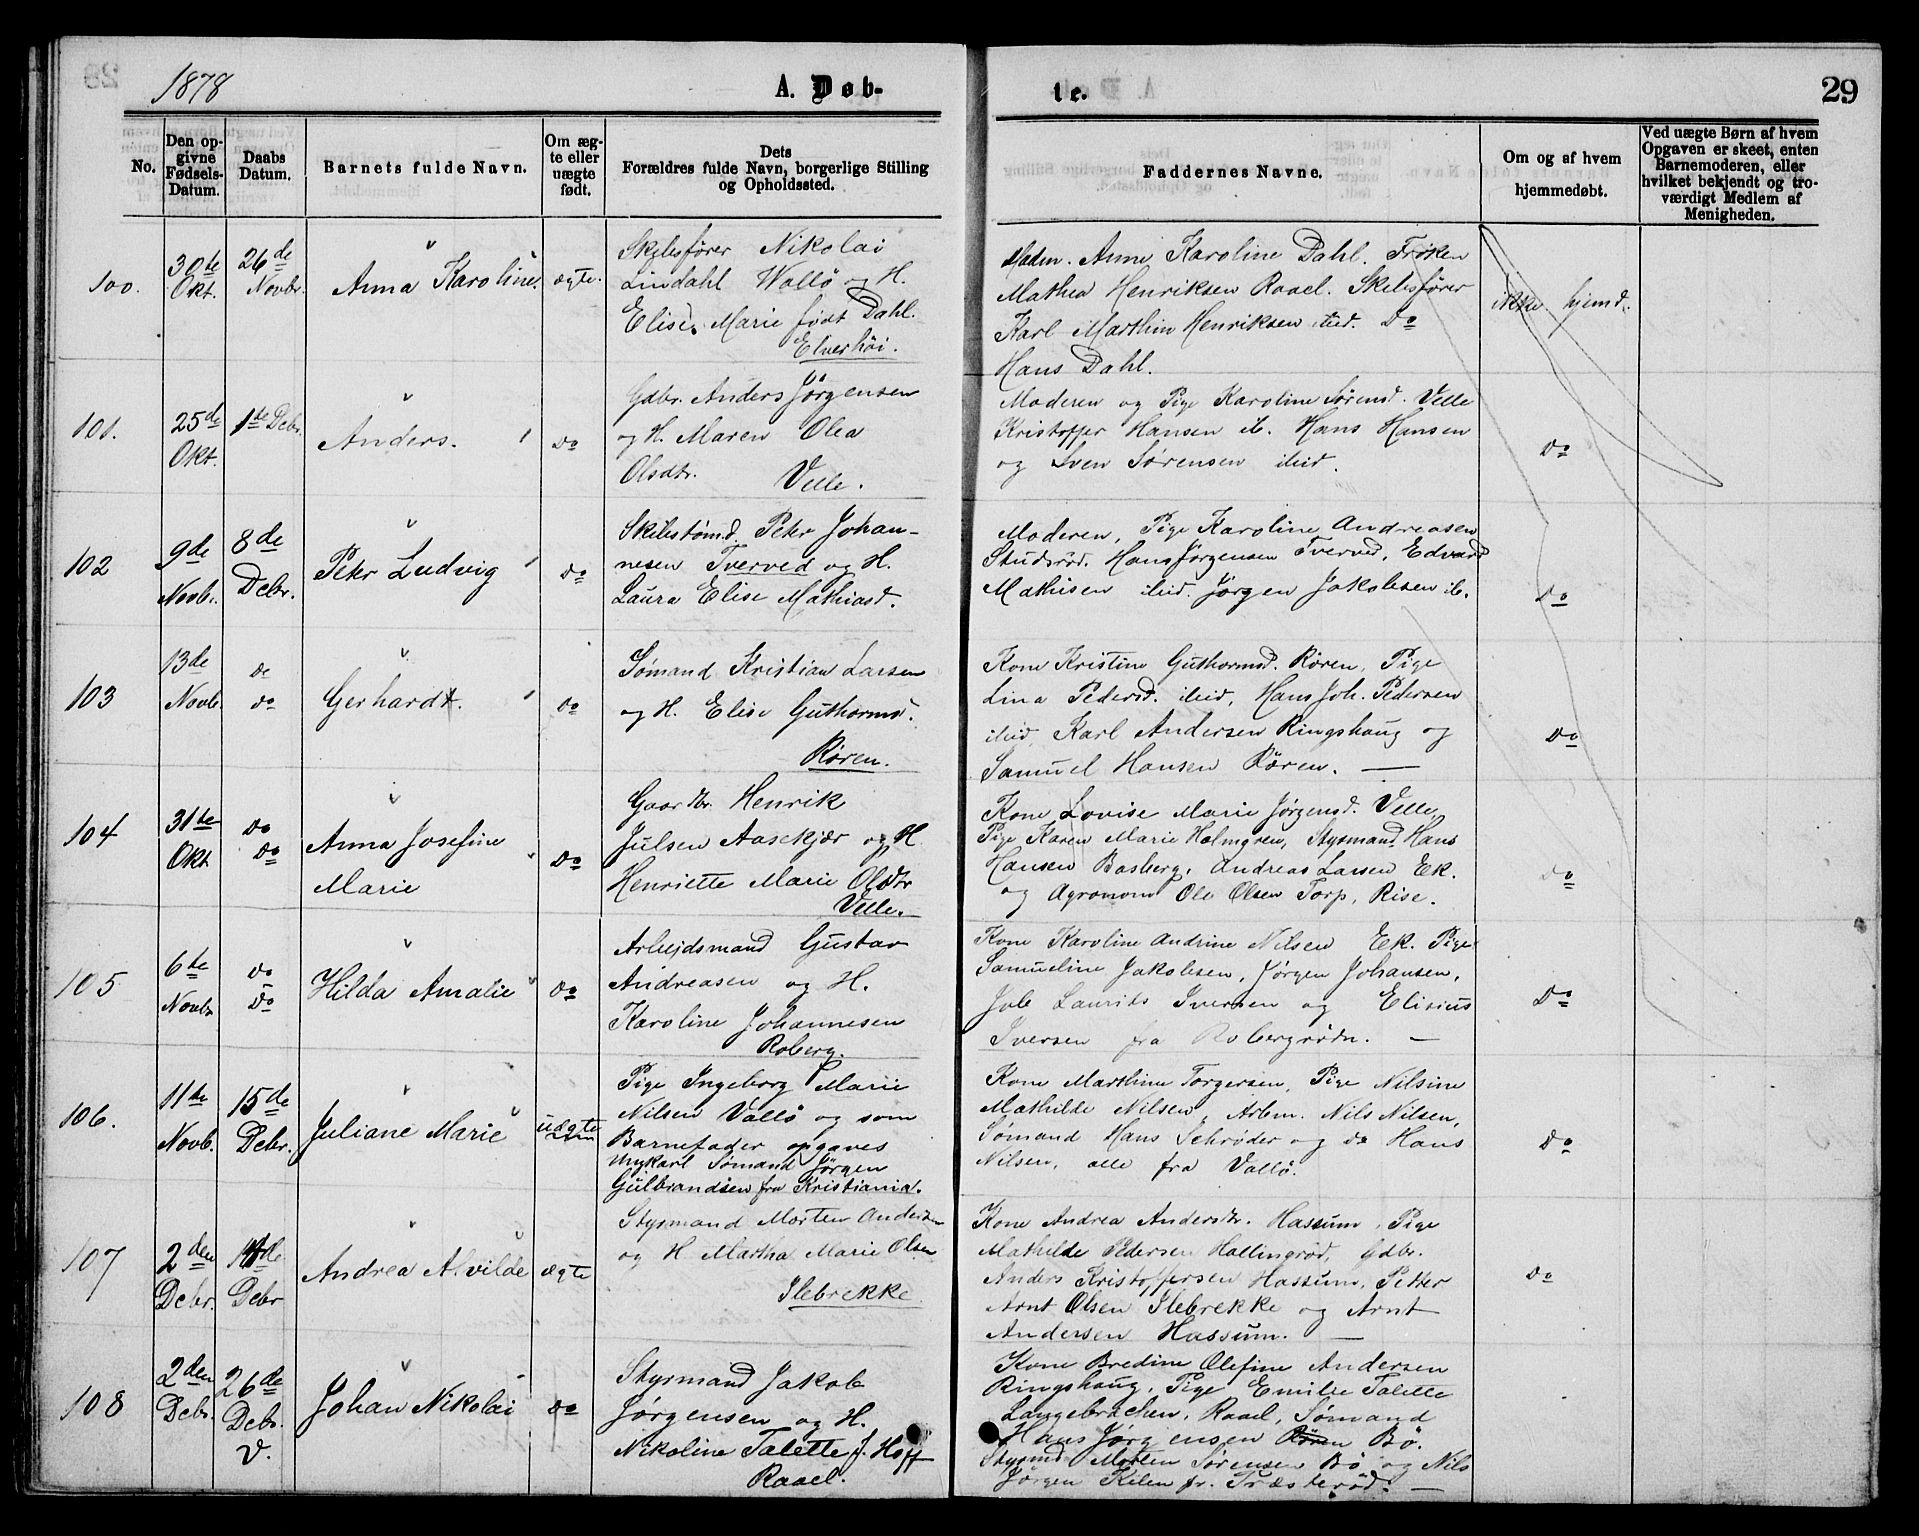 1878
A. Døb-
te.
29
No.
Den op-
givne
Fødsels-
Datum.
Daabs
Datum.
Barnets fulde Navn.
Om æg-
te eller
uægte
født.
Dets
Forældres fulde Navn, borgerlige Stilling
og Opholdssted.
Faddernes Navne.
Om og af hvem
hjemmedøbt.
Ved uægte Børn af hvem
Opgaven er skeet, enten
Barnemoderen, eller
hvilket bekjendt og tro-
værdigt Medlem af
Menigheden.
100.
30te
Okt.
26de
Novbr.
Anna Karoline.
ægte.
Skibsfører Nikolai
Lindahl Wallö og H.
Elise Marie født Dahl.
Elverhöi.
Madm. Anne Karoline Dahl. Frøken
Mathea Henriksen Raael. Skibsfører
Karl Marthin Henriksen ibid. Do
Hans Dahl.
ikke hjemd.
101.
25de
Okt.
1ste Debr.
Anders.
do
Gdbr. Anders Jörgensen
og H. Maren Olea
Olsdtr.
Velle.
Moderen og Pige Karoline Sörensd. Velle
Kristoffer Hansen ib. Hans Hansen
og Sven Sörensen ibid.
Do
102
9de
Novbr.
8de
Debr.
Petr Ludvig
do
Skibstømd. Petr Johan-
nesen Tverved og H.
Laura Elise Mathiasd.
Moderen, Pige Karoline Andreasen
Studsrød. Hans Jørgensen Tverved, Edvard
Mathisen ibid. Jørgen Jakobsen ib.
Do
103
13de
Novb.
de
do
Gerhardt.
do
Sømand Kristian Larsen
og H. Elise Guthormsd.
Røren.
Kone Kristine Guthormsd. Røren, Pige
Lina Pedersd. ibid, Hans Joh. Pedersen
ibid, Karl Andersen Ringshaug og
Samuel Hansen Røren. —
Do
104
31te
Okt
Do
Do
Anna Josefine
Marie
Do
Gaardbr. Henrik
Julsen Aasekjær og H.
Henriette Marie Olsdtr
Velle.
Kone Lovise Marie Jørgensd. Velle,
Pige Karen Marie Holmgren, Styrmand Hans
Hansen Basberg, Andreas Larsen Ek.
og Agronom Ole Olsen Torp, Rise.
Do
105
6te
Novbr
do
Do
Hilda Amalie
Do
Arbejdsmand Gustav
Andreasen og H.
Karoline Johannesen
Roberg.
Kone Karoline Andrine Nilsen Ek. Pige
Samueline Jakobsen, Jørgen Johansen,
Job Laurits Iversen og Elisius
Iversen fra Robergrødn. —
Do
106.
11te
Novb.
15de
Debr.
Juliane Marie
uægte
Pige Ingeborg Marie
Nilsen Vallö og som
Barnefader opgaves
Ungkarl Sømand Jørgen
Gülbrandsen fra Kristiania.
Kone Marthine Torgersen, Pige Nilsine
Mathilde Nilsen, Arbm. Nils Nilsen,
Sømand Hans Schrøder og do Hans
Nilsen, alle fra Vallö.
Do
107
2den
Debr.
Debr
Andrea Alvilde
ægte
Styrmand Morten Andersen
og H Martha Marie Olsen
Ilebrekke
Kone Andrea Andersdtr. Hassum, Pige
Mathilde Pedersen Hallingrød, Gdbr.
Anders Kristoffersen Hassum, Petter
Arnt Olsen Ilebrekke og Arnt
Andersen Hassum. —
Do
108
2den
Debr.
26de
Debr.
V.
Johan Nikolai
do
Styrmand Jakob
Jørgensen og H.
Nikoline Talette f. Hoff
Raael.
Kone Bredine Olefine Andersen
Ringshaug, Pige Emilie Talette
Langebrachen, Raael, Sømand
Hans Jørgensen Røren Bø.
Styrmd Morten Sørensen Bø og Nils
Jørgen Kilen fr. Træsterød. —